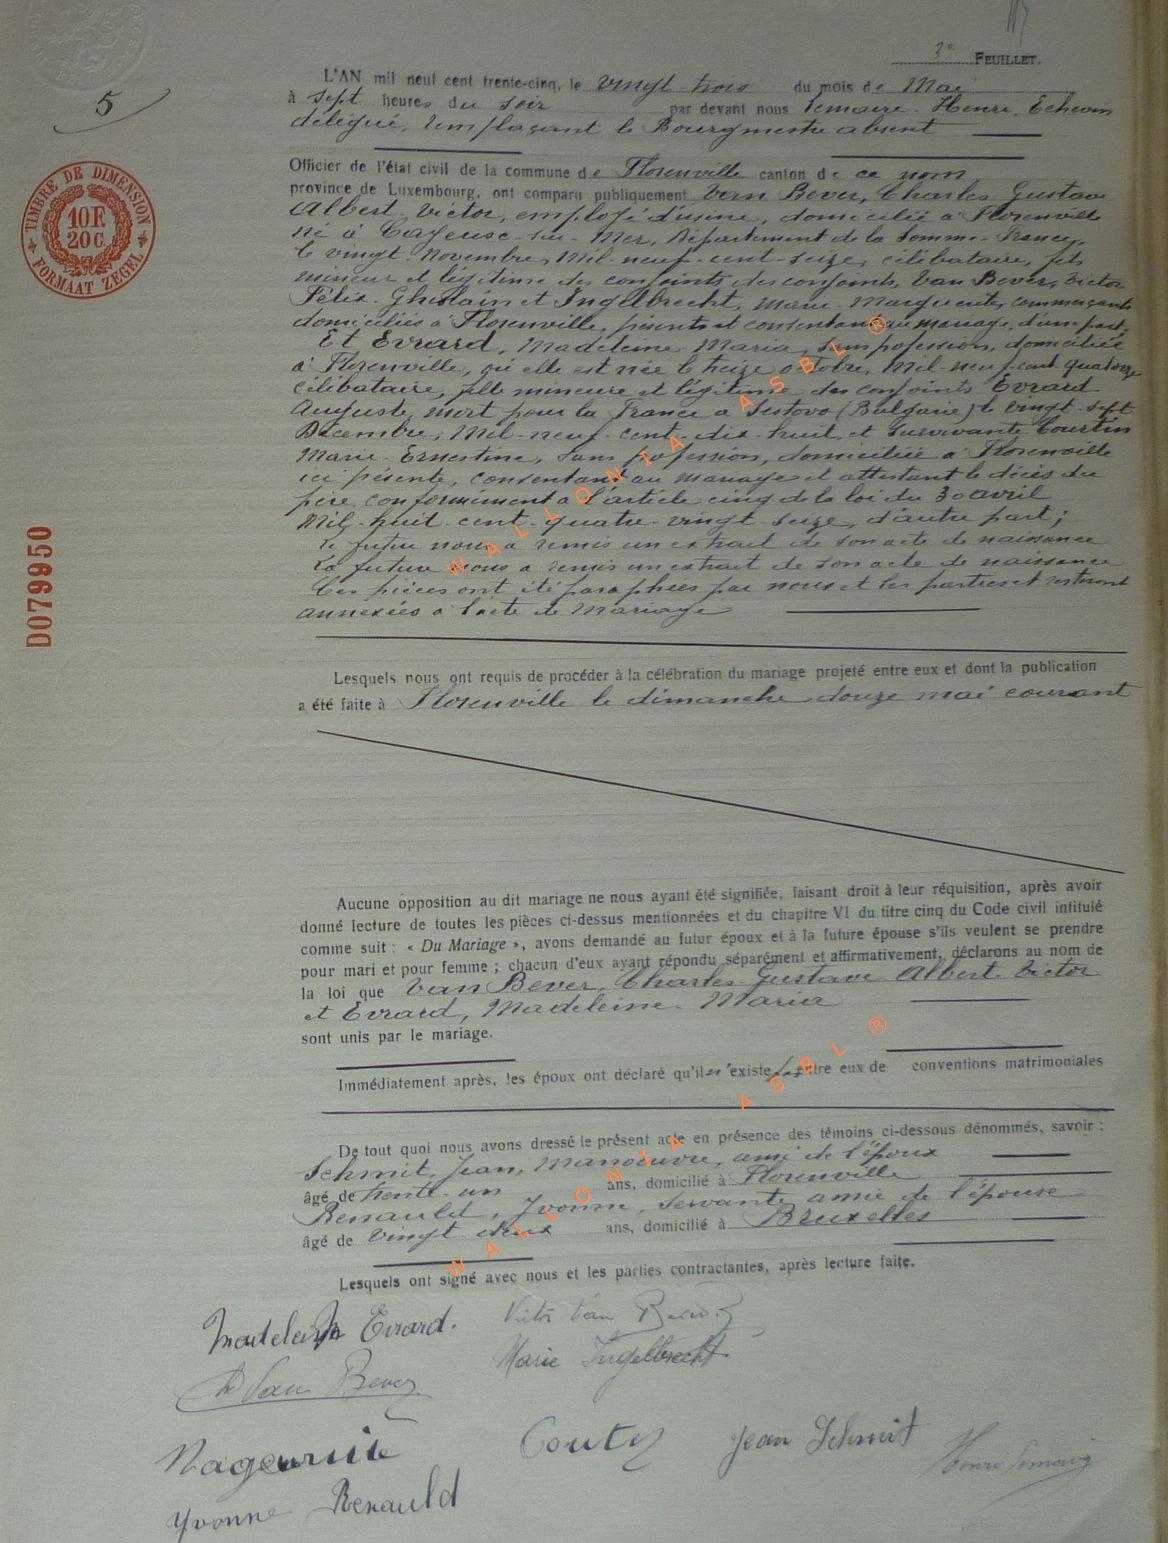 3e FEUILLET.
5
L'AN mil neuf cent trente-cinq, le vingt trois du mois de Mai
à sept heures du soir par devant nous Lemaire Henri, Echevin
délégué, remplaçant le Bourgmestre absent
Officier de l'état civil de la commune de Florenville canton de ce nom
province de Luxembourg, ont comparu publiquement Van Bever, Charles Gustave
Albert Victor, employé d'usine, domicilié à Florenville
né à Cayeuse-sur-Mer, Département de la Somme-France,
le vingt Novembre, Mil-neuf-cent-seize, célibataire, fils
mineur et légitime des conjoints des conjoints, Van Bever, Victor
Félix-Ghislain et Ingelbrecht, Marie-Marguerite, commerçants
domiciliés à Florenville, présents et consentant au mariage, d'une part;
Et Evrard, Madeleine-Maria, sans profession, domiciliée
à Florenville, où elle est née le treize octobre, Mil-neuf-cent quatorze
célibataire, fille mineure et légitime des conjoints Evrard
Auguste, mort pour la France à Sistovo (Bulgarie) le vingt-sept
Décembre, Mil-neuf-cent-dix-huit, et survivante Courtin
Marie-Ernestine, sans profession, domiciliée à Florenville
ici présente, consentant au mariage et attestant le décès du
père conformément à l'article cinq de la loi du 30 avril
Mil-huit-cent-quatre-vingt-seize, d'autre part;
Le futur nous a remis un extrait de son acte de naissance
La future nous a remis un extrait de son acte de naissance
Ces pièces ont été paraphées par nous et les parties et resteront
annexées à l'acte de Mariage
Lesquels nous ont requis de procéder à la célébration du mariage projeté entre eux et dont la publication
a été faite à Florenville le dimanche douze mai courant
Aucune opposition au dit mariage ne nous ayant été signifiée, faisant droit à leur réquisition, après avoir
donné lecture de toutes les pièces ci-dessus mentionnées et du chapitre VI du titre cinq du Code civil intitulé
comme suit : « Du Mariage », avons demandé au futur époux et à la future épouse s'ils veulent se prendre
pour mari et pour femme ; chacun d'eux ayant répondu séparément et affirmativement, déclarons au nom de
la loi que Van Bever, Charles Gustave Albert Victor
et Evrard, Madeleine-Maria
sont unis par le mariage.
Immédiatement après, les époux ont déclaré qu'il n'existe pas entre eux de conventions matrimoniales
De tout quoi nous avons dressé le présent acte en présence des témoins ci-dessous dénommés, savoir :
Schmit, Jean, Manoeuvre, ami de l'époux
âgé de trente-un ans, domicilié à Florenville
Renauld, Yvonne, servante, amie de l'épouse
âgé de vingt deux ans, domicilié à Bruxelles
Lesquels ont signé avec nous et les parties contractantes, après lecture faite.
Madeleine Evrard. Victor Van Bever
Ch Van Bever Marie Ingelbrecht
Jean Schmit Henri Lemaire
Yvonne Renauld
TIMBRE DE DIMENSION
10 F.
20 C.
FORMAAT ZEGEL
D079950
WALLONIA ASBL ®
WALLONIA ASBL ®